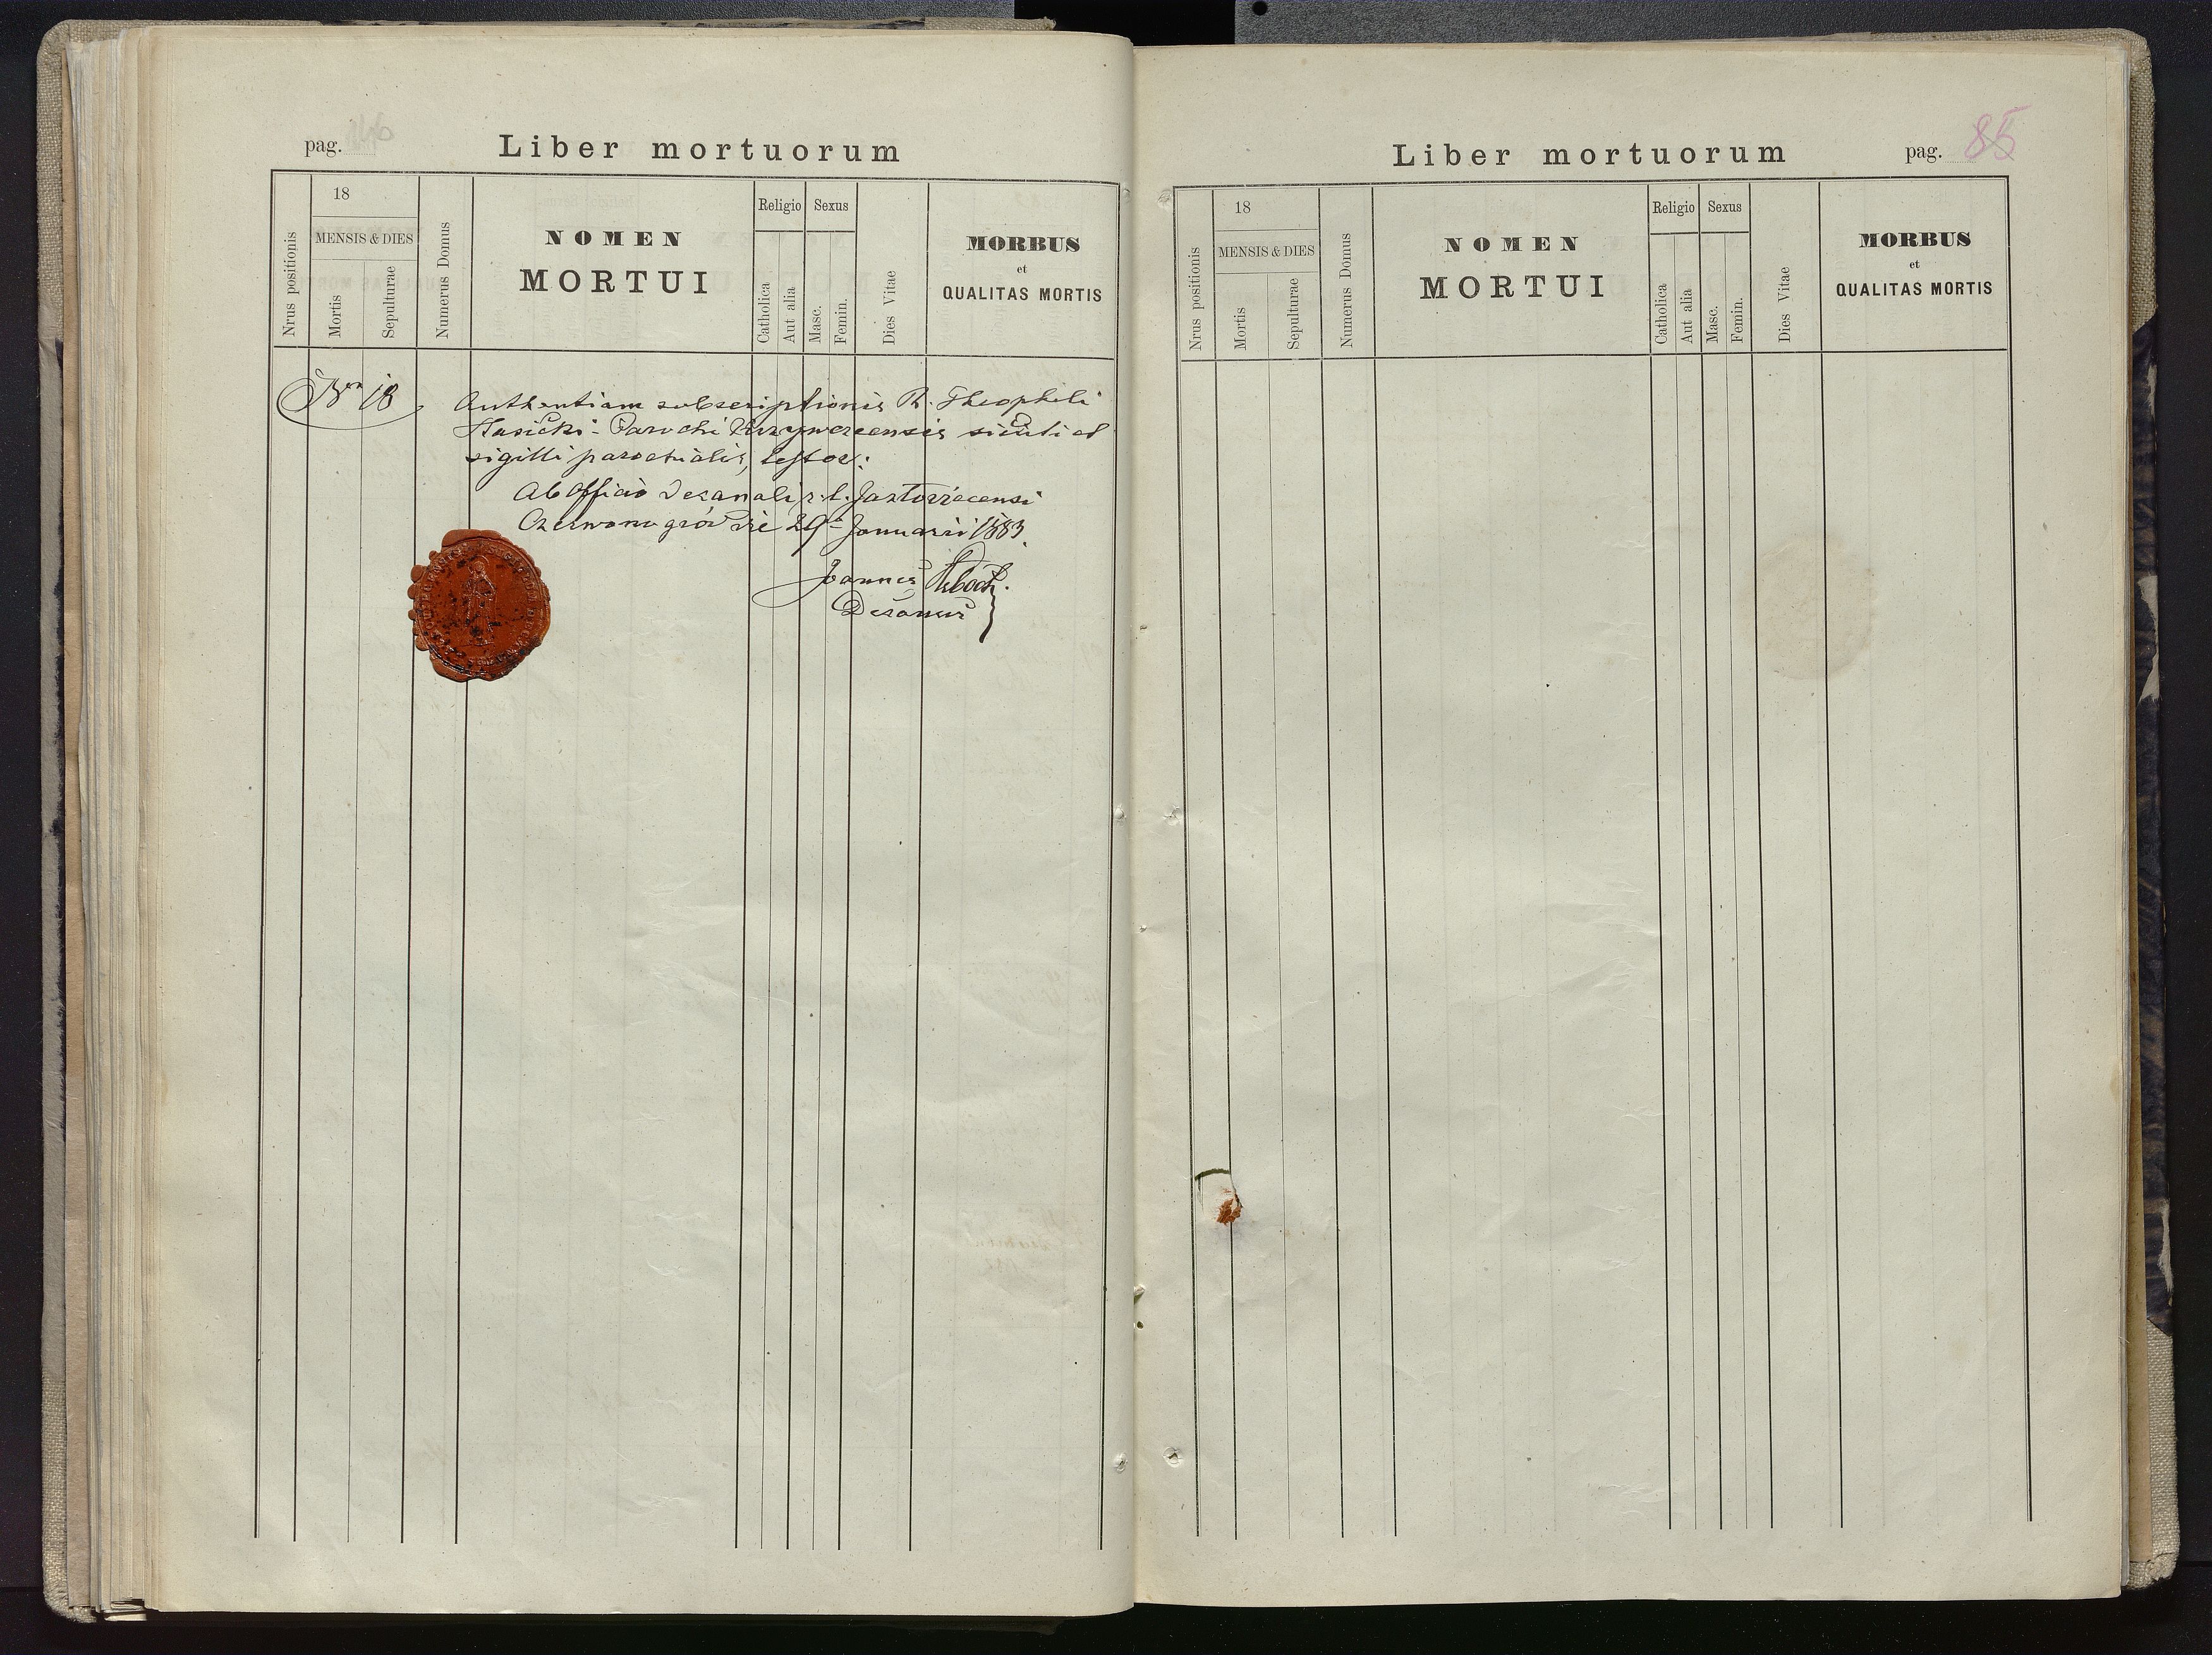 pag. 146
Liber mortuorum
Nrus positionis
18
MENSIS & DIES
Mortis
Sepulturae
Numerus Domus
NOMEN
MORTUI
Religio
Catholica
Aut alia
Sexus
Masc.
Femin.
Dies Vitae
MORBUS
et
QUALITAS MORTIS
Nrr 18
Authentiam subscriptionis R. Theophili
Parochi siculi et
sigilli parochialis, testor:
Ab Officio Decanali r. l. Jazlovecensi
Czerwonogród die 29a Januarii 1883.
Joannes
Decanus
Liber mortuorum
pag. 85
Nrus positionis
18
MENSIS & DIES
Mortis
Sepulturae
Numerus Domus
NOMEN
MORTUI
Religio
Catholica
Aut alia
Sexus
Masc.
Femin.
Dies Vitae
MORBUS
et
QUALITAS MORTIS